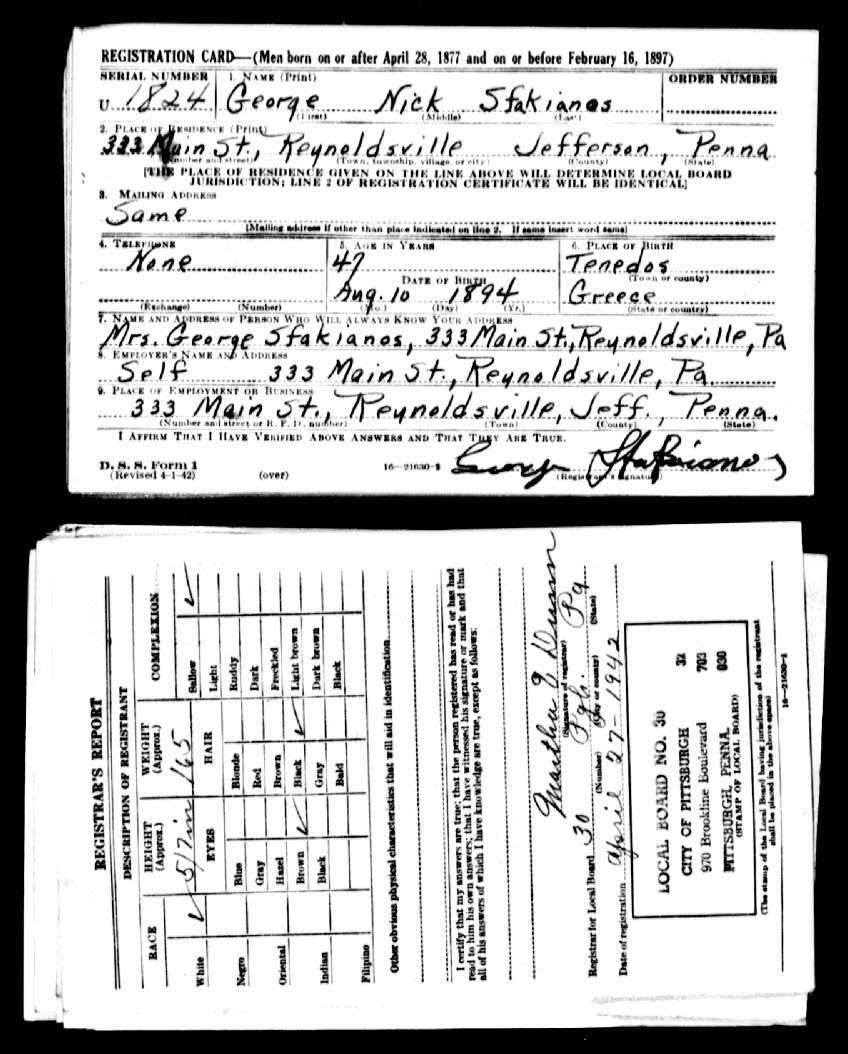 REGISTRATION CARD—(Men born on or after April 28, 1877 and on or before February 16, 1897)
SERIAL NUMBER 1. NAME (Print) ORDER NUMBER
U 1824 George Nick Sfakianos
(First) (Middle) (Last)
2. PLACE OF RESIDENCE (Print)
333 Main St., Reynoldsville Jefferson, Penna
(Number and street) (Town, township, village, or city) (County) (State)
[THE PLACE OF RESIDENCE GIVEN ON THE LINE ABOVE WILL DETERMINE LOCAL BOARD
JURISDICTION; LINE 2 OF REGISTRATION CERTIFICATE WILL BE IDENTICAL]
3. MAILING ADDRESS
Same
[Mailing address if other than place indicated on line 2. If same insert word same]
4. TELEPHONE 5. AGE IN YEARS 6. PLACE OF BIRTH
None 47 Tenedos
(Town or county)
DATE OF BIRTH
Aug. 10 1894 Greece
(Exchange) (Number) (Mo.) (Day) (Yr.) (State or country)
7. NAME AND ADDRESS OF PERSON WHO WILL ALWAYS KNOW YOUR ADDRESS
Mrs. George Sfakianos, 333 Main St., Reynoldsville, Pa
8. EMPLOYER'S NAME AND ADDRESS
Self 333 Main St., Reynoldsville, Pa.
9. PLACE OF EMPLOYMENT OR BUSINESS
333 Main St., Reynoldsville, Jeff., Penna.
(Number and street or R. F. D. number) (Town) (County) (State)
I AFFIRM THAT I HAVE VERIFIED ABOVE ANSWERS AND THAT THEY ARE TRUE.
D. S. S. Form 1
(Revised 4-1-42) (over) 16—21630-2 George Sfakianos
(Registrant's signature)
REGISTRAR'S REPORT
DESCRIPTION OF REGISTRANT
RACE HEIGHT (Approx.) WEIGHT (Approx.) COMPLEXION
5/7 in 165
White ✓ EYES HAIR Sallow ✓
Light
Negro Blue Blonde Ruddy
Gray Red Dark
Oriental Hazel Brown Freckled
Brown ✓ Black ✓ Light brown
Indian Black Gray Dark brown
Bald Black
Filipino
Other obvious physical characteristics that will aid in identification
I certify that my answers are true; that the person registered has read or has had
read to him his own answers; that I have witnessed his signature or mark and that
all of his answers of which I have knowledge are true, except as follows:
Martha E Dunn
(Signature of registrar)
Registrar for Local Board 30 Pgh. Pa
(Number) (City or county) (State)
Date of registration April 27-1942
LOCAL BOARD NO. 30 32
CITY OF PITTSBURGH 703
970 Brookline Boulevard 030
PITTSBURGH, PENNA.
(STAMP OF LOCAL BOARD)
(The stamp of the Local Board having jurisdiction of the registrant
shall be placed in the above space)
16—21630-1